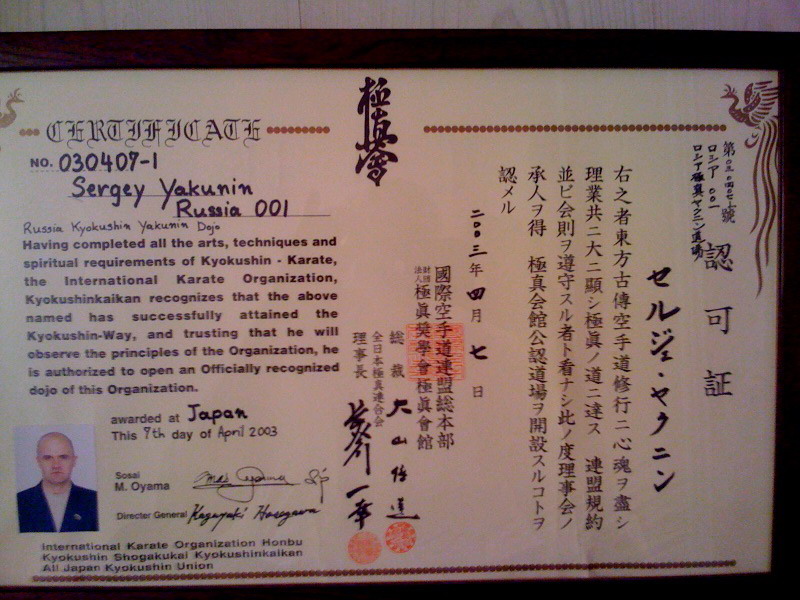 極真會
CERTIFICATE
NO. 030407-1
Sergey Yakunin
Russia 001
Russia Kyokushin Yakunin Dojo
Having completed all the arts, techniques and
spiritual requirements of Kyokushin - Karate,
the International Karate Organization,
Kyokushinkaikan recognizes that the above
named has successfully attained the
Kyokushin-Way, and trusting that he will
observe the principles of the Organization, he
is authorized to open an Officially recognized
dojo of this Organization.
awarded at Japan
This 7th day of April 2003
Sosai
M. Oyama
Director General Kazuyuki Hasegawa
International Karate Organization Honbu
Kyokushin Shogakukai Kyokushinkaikan
All Japan Kyokushin Union
ロシア 001
ロシア極真ヤクニン道場
認可証
セルジェ・ヤクニン
右之者東方古傳空手道修行ニ心魂ヲ盡シ
理業共ニ大ニ顕シ極真ノ道ニ達ス 連盟規約
並ビ会則ヲ遵守スル者ト看ナシ此ノ度理事会ノ
承人ヲ得 極真会館公認道場ヲ開設スルコトヲ
認メル
二〇〇三年四月七日
國際空手道連盟総本部
財団法人 極真奨學會極真會館
総裁 大山倍達
全日本極真連合会
理事長 長谷川一幸